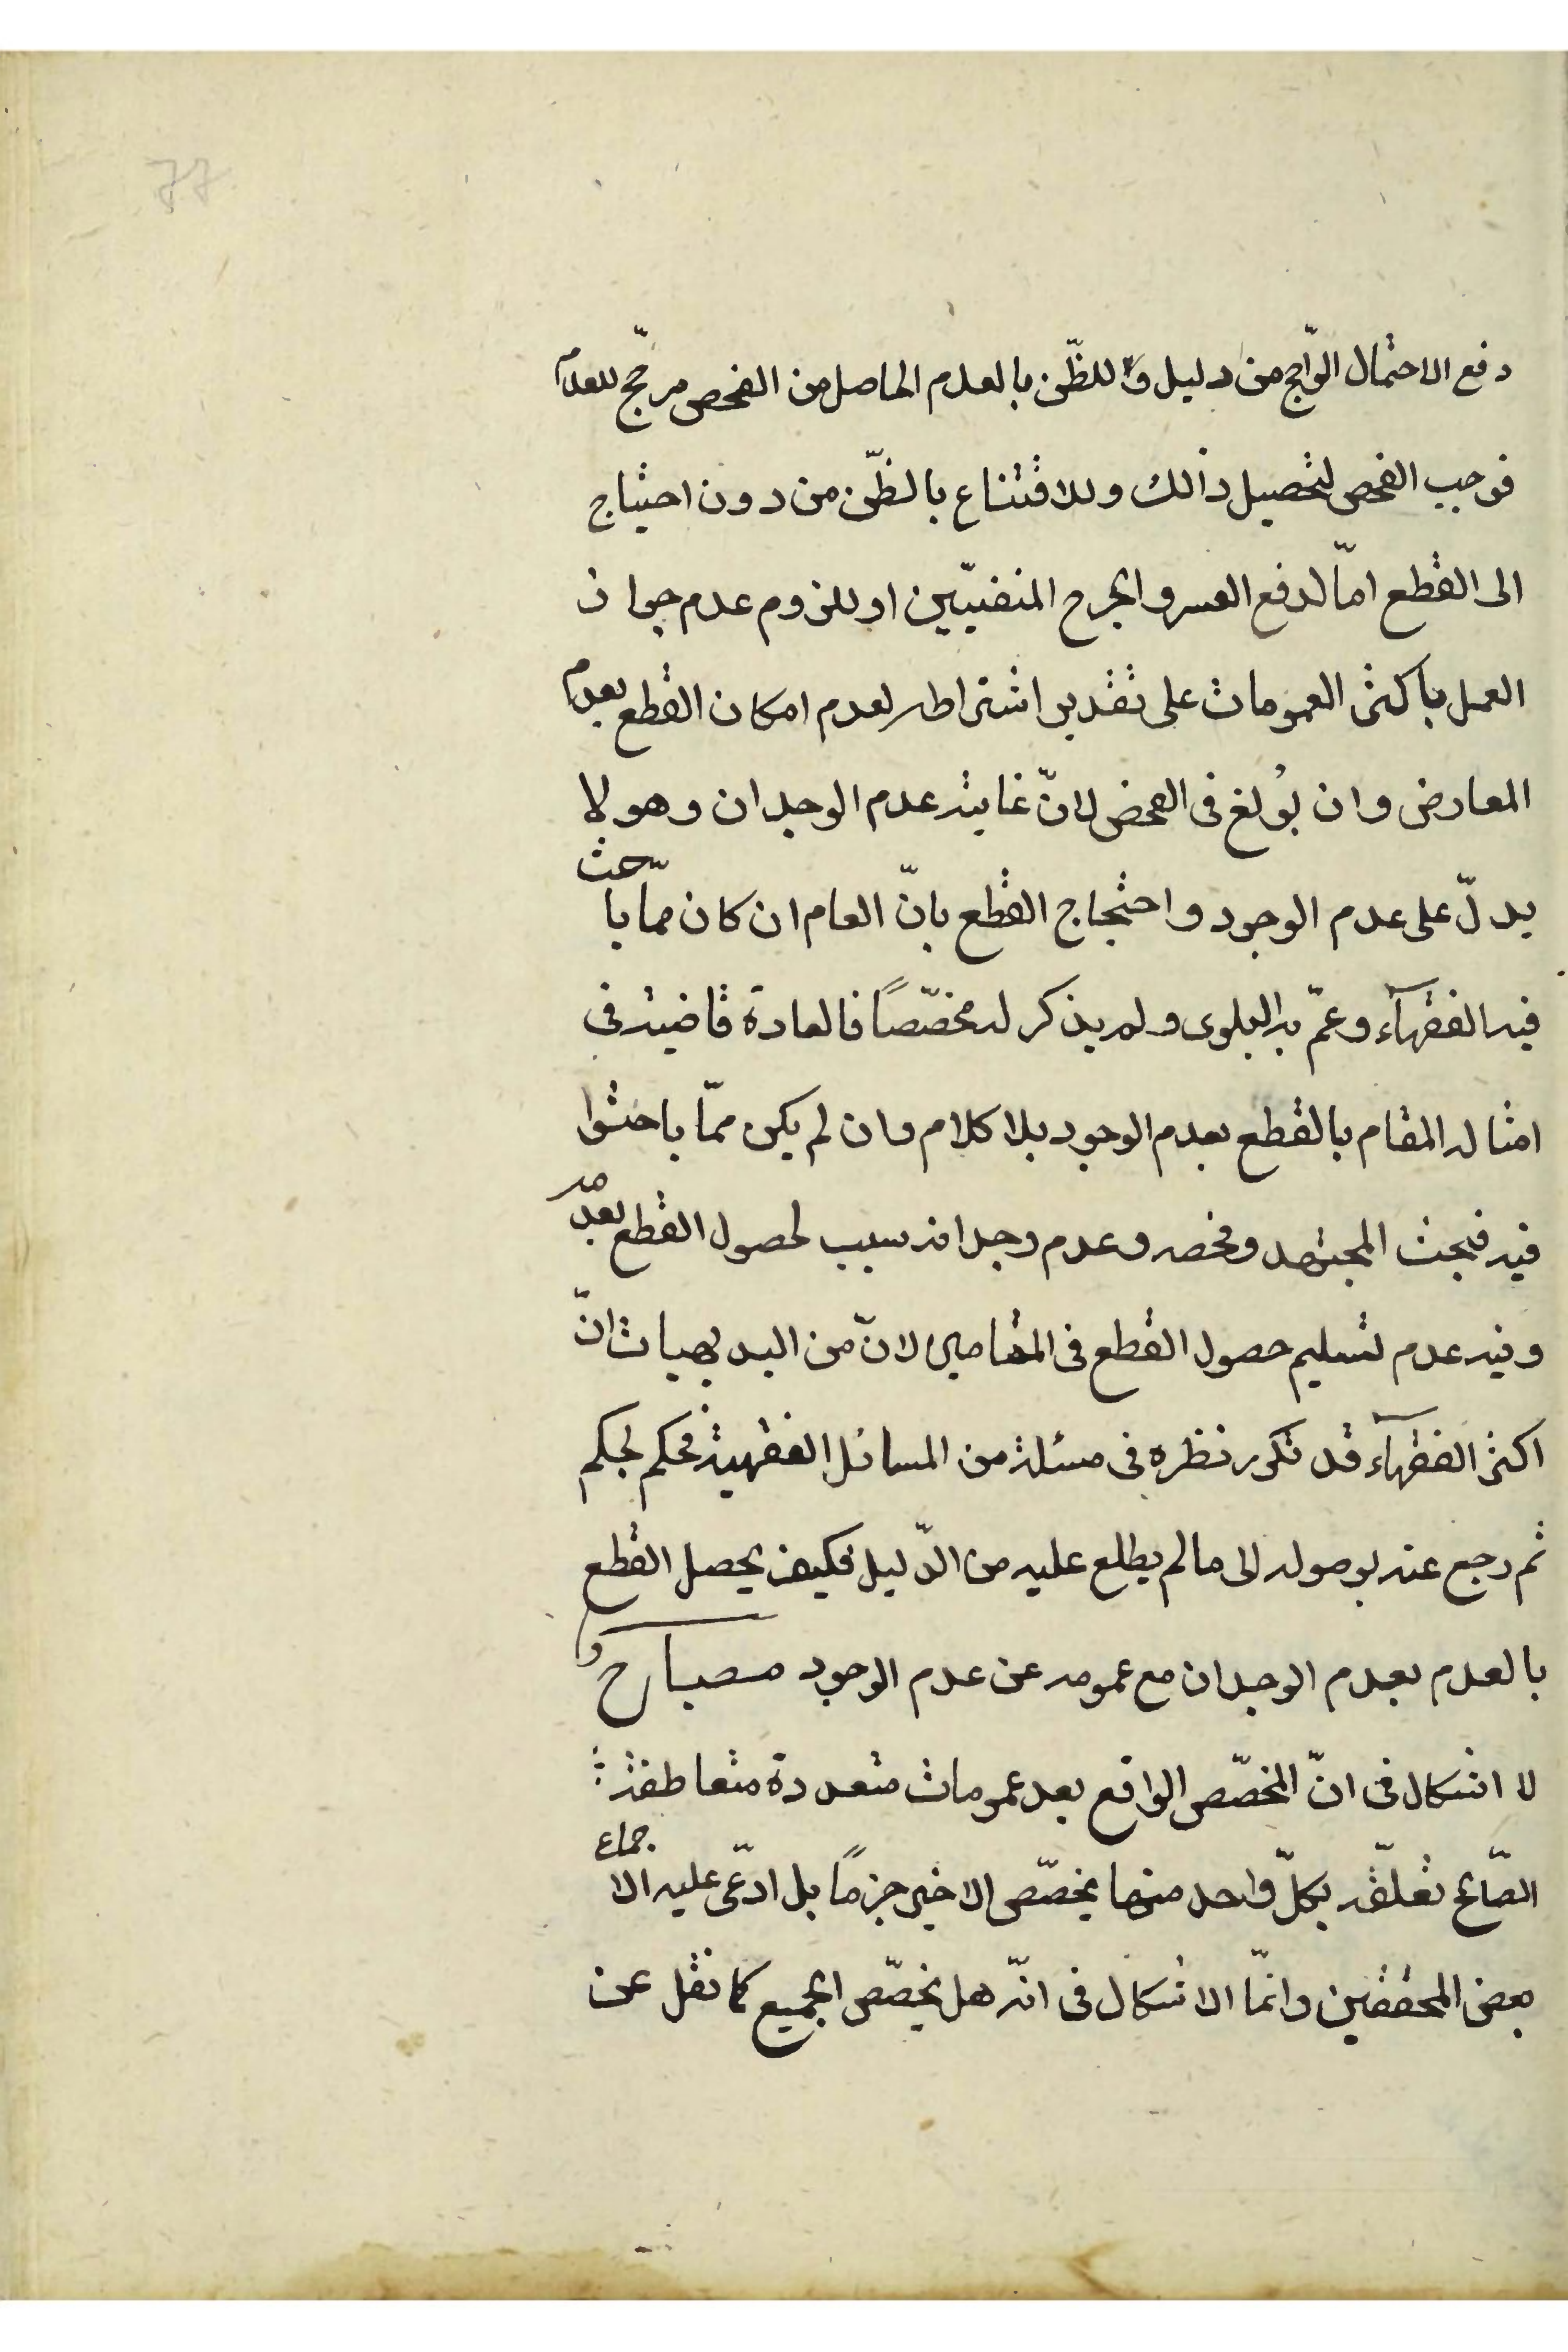 77
دفع الاحتمال الرّاجح من دليل و للظّن بالعدم الحاصل من الفحص مرجّح للعدم
فوجب الفحص لتحصيل ذالك وللاقتناع بالظّن من دون احتياج
الى القطع امّا لدفع العسر والحرج المنفيّين او للزوم عدم جواز
العمل باكثر العمومات على تقدير اشتراطه لعدم امكان القطع بعدم
المعارض وان بُولغ فى الفحص لانّ غايته عدم الوجدان وهو لا
يدلّ على عدم الوجود واحتجاج القطع بانّ العام ان كان ممّا باحث
فيه الفقهآء وعمّ به البلوى ولم يذكر له مخصّصاً فالعادة قاضية فى
امثاله المقام بالقطع بعدم الوجود بلا كلام وان لم يكن ممّا باحثوا
فيه فبحث المجتهد وفحصه وعدم وجدانه سبب لحصول القطع بعدمه
وفيه عدم تسليم حصول القطع فى المقامين لانّ من البديهيات انّ
اكثر الفقهآء قد تكرر نظره فى مسئلة من المسائل الفقهية فحكم بحكم
ثم رجع عنه بوصوله الى ما لم يطلع عليه من الدّليل فكيف يحصل القطع
بالعدم بعدم الوجدان مع عمومه عن عدم الوجود مصباح
لا اشكال فى انّ المخصّص الواقع بعد عمومات متعددة متعاطفة
الصّالح تعلّقه بكلّ واحد منها يخصّص الاخير جزماً بل ادّعى عليه الاجماع
بعض المحققين وانّما الاشكال فى انّه هل يخصّص الجميع كما نقل عن